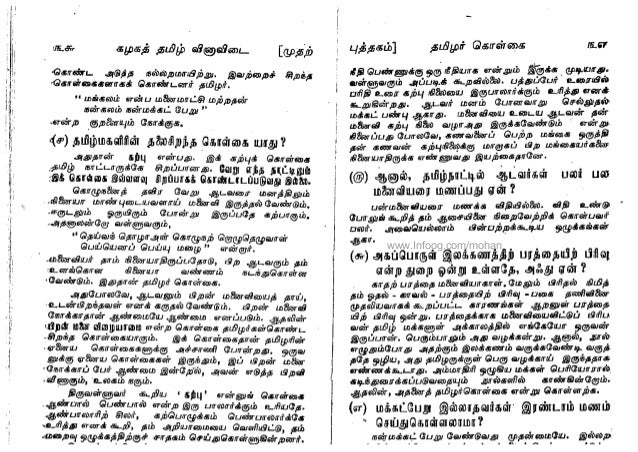 ௩௬ கழகத் தமிழ் வினாவிடை [முதற்
கொண்ட அடுத்த நல்லறமாயிற்று. இவற்றைச் சிறந்த
கொள்கைகளாகக் கொண்டனர் தமிழர்.
“ மங்கலம் என்ப மனைமாட்சி மற்றதன்
நன்கலம் நன்மக்கட் பேறு ”
என்ற குறளையும் நோக்குக.
(௪) தமிழ்மகளிரின் தலைசிறந்த கொள்கை யாது ?
அதுதான் கற்பு என்பது. இக் கற்புக் கொள்கை
தமிழ் நாட்டாருக்கே சிறப்பானது. வேறு எந்த நாட்டினும்
இக் கொள்கை இவ்வளவு சிறப்பாகக் கொண்டாடப்படுவது இல்லை.
கொழுநனைத் தவிர வேறு ஆடவரை மனத்திலும்
நினையா மாண்புடையவளாய் மனைவி இருத்தல் வேண்டும்,
ஈருடலும் ஒருயிரும் போன்று இருப்பதே கற்பாகும்,
அதனாலன்றோ வள்ளுவரும்,
“தெய்வந் தொழாஅள் கொழுநற் றொழுதெழுவாள்
பெய்யெனப் பெய்யு மழை” என்றார்.
மனைவியர் தாம் நினையாதிருப்பதோடு, பிற ஆடவரும் தம்
உளக்கொள நினையா வண்ணம் நடந்துகொள்ள
வேண்டும். இதுதான் தமிழர் கொள்கை.
அதுபோலவே, ஆடவனும் பிறன் மனைவியைத் தாய்,
உடன்பிறந்தவள் எனக் கருதல் வேண்டும். பிறன் மனைவி
நோக்காதான் ஆண்மையே ஆண்மை எனப்படும். ஆதலின்
பிறன் மனை விழையாமை என்ற கொள்கை தமிழர்கள்கொண்ட
சிறந்த கொள்கையாகும். இக் கொள்கைதான் தமிழரின்
ஏனைய கொள்கைகளுக்கு அச்சாணி போன்றது. ஒருவ
னுக்கு ஏனைய கொள்கைகள் இருந்தும், இப் பிறன் மனை
நோக்காப் பேர் ஆண்மை இன்றேல், அவன் எடுத்த பிறவி
வீணாகும், உலகம் நகும்.
திருவள்ளுவர் கூறிய ‘கற்பு’ என்னுங் கொள்கை
ஆண்பால் பெண்பால் என்ற இரு பாலார்க்கும் உரியதே.
ஆண்பாலாரிற் சிலர், கற்பொழுக்கம் பெண்பாலார்க்கே
உரித்து எனக் கூறி, தம் அறியாமையை வெளியிட்டு, தம்
மறைவு ஒழுக்கத்திற்குச் சாதகம் செய்துகொள்ளுகின்றனர்.
புத்தகம்] தமிழர் கொள்கை ௩௭
நீதி பெண்ணுக்கு ஒரு நீதியாக என்றும் இருக்க முடியாது.
வள்ளுவரும் அப்படிக் கூறவில்லை. பத்துப்பேர் உரையில்
பரிதி உரை கற்பு நிலையை இருபாலார்க்கும் உரித்து எனக்
கூறுகின்றது. ஆடவர் மனம் போனவாறு செல்லுதல்
மக்கட் பண்பு ஆகாது. மனைவியை உடைய ஆடவன் தன்
மனைவி கற்பு நிலை வழாஅது இருக்கவேண்டும் என்று
நினைப்பது போலவே, கணவனைப் பெற்ற மங்கை ஒருத்தி
தன் கணவன் கற்புநிலைக்கு மாறாகப் பிற மங்கையர்களை
நினையாதிருக்க எண்ணுவது இயற்கைதானே.
(௫) ஆனால், தமிழ்நாட்டில் ஆடவர்கள் பலர் பல
மனைவியரை மணப்பது ஏன் ?
பன்மனைவியரை மணக்க விதியில்லை. விதி உண்டு
போலுங் கூறித் தம் ஆசையினை நிறைவேற்றிக் கொள்பவர்
பலர். அவையெல்லாம் பின்பற்றக்கூடிய ஒழுக்கங்கள்
ஆகா.
www.Infoog.com/mohan
(௬) அகப்பொருள் இலக்கணத்திற் பரத்தையிற் பிரிவு
என்ற துறை ஒன்று உள்ளதே, அஃது ஏன் ?
காதற் பரத்தை மனைவியாகாள். மேலும் பிரிதல் நிமித்
தம் ஓதல் - காவல் - பரத்தையிற் பிரிவு - பகை தணிவினை
முதலியவாகக் கூறப்பட்ட காரணங்கள் ஆறனுள் பரத்தை
யிற் பிரிவு ஒன்று. பரத்தைக்காக மனைவியைவிட்டுப் பிரிப
வன் தமிழ் மக்களுள் அக்காலத்தில் எங்கேயோ ஒருவன்
இருப்பான். பெரும்பாலும் அது வழக்கன்று. ஆனால், நூல்
எழுதும்போது அதற்கும் இலக்கணம் வகுக்கவேண்டி வகுத்
ததே ஒழிய, அது தமிழருக்குள் பெரு வழக்காய் இருந்ததாக
எண்ணக்கூடாது. அம்மாதிரி ஒழுகிய மக்கள் பெரியோரால்
கடிந்துரைக்கப்படுவதையும் நூல்களில் காண்கின்றோம்.
ஆதலின், அதனைத் தமிழர்கொள்கை என்று கொள்ளற்க.
(௭) மக்கட்பேறு இல்லாதவர்கள் இரண்டாம் மணம்
செய்துகொள்ளலாமா ?
நன்மக்கட் பேறு வேண்டுவது முதன்மையே. இல்லற